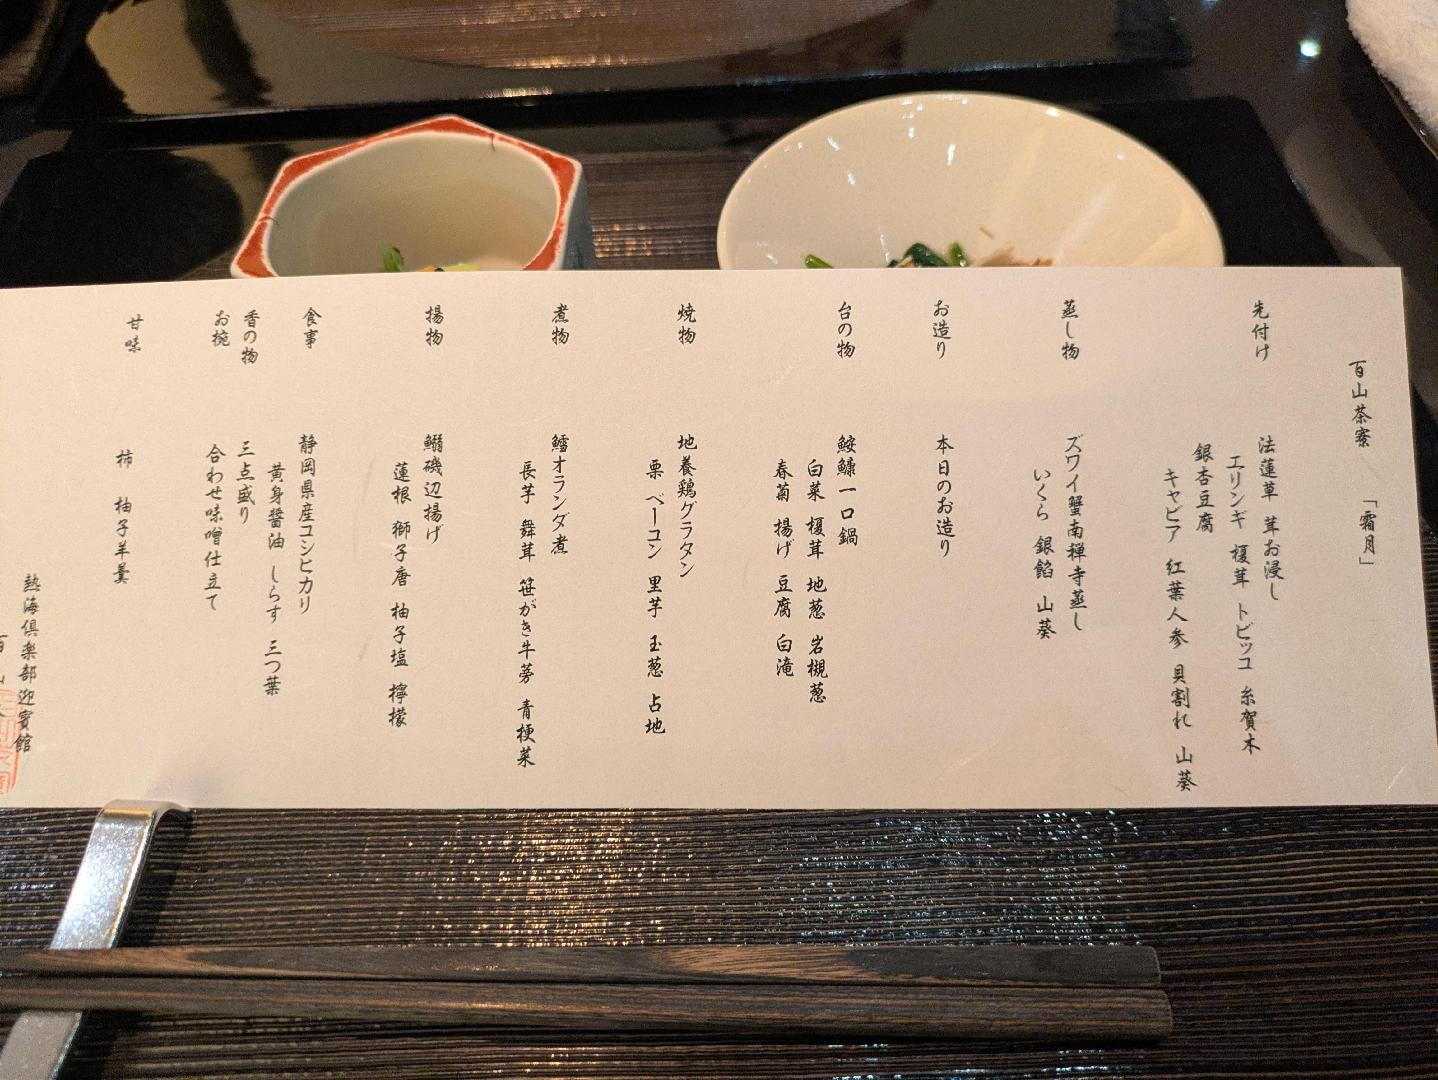 百山茶寮 「霜月」
先付け 法蓮草 茸お浸し
エリンギ 榎茸 トビッコ 糸賀木
銀杏豆腐
キャビア 紅葉人参 貝割れ 山葵
蒸し物 ズワイ蟹南禅寺蒸し
いくら 銀餡 山葵
お造り 本日のお造り
台の物 鮟鱇一口鍋
白菜 榎茸 地葱 岩槻葱
春菊 揚げ 豆腐 白滝
焼物 地養鶏グラタン
栗 ベーコン 里芋 玉葱 占地
煮物 鱈オランダ煮
長芋 舞茸 笹がき牛蒡 青梗菜
揚物 鰯磯辺揚げ
蓮根 獅子唐 柚子塩 檸檬
食事 静岡県産コシヒカリ
黄身醤油 しらす 三つ葉
香の物 三点盛り
お椀 合わせ味噌仕立て
甘味 柿 柚子羊羹
熱海倶楽部迎賓館